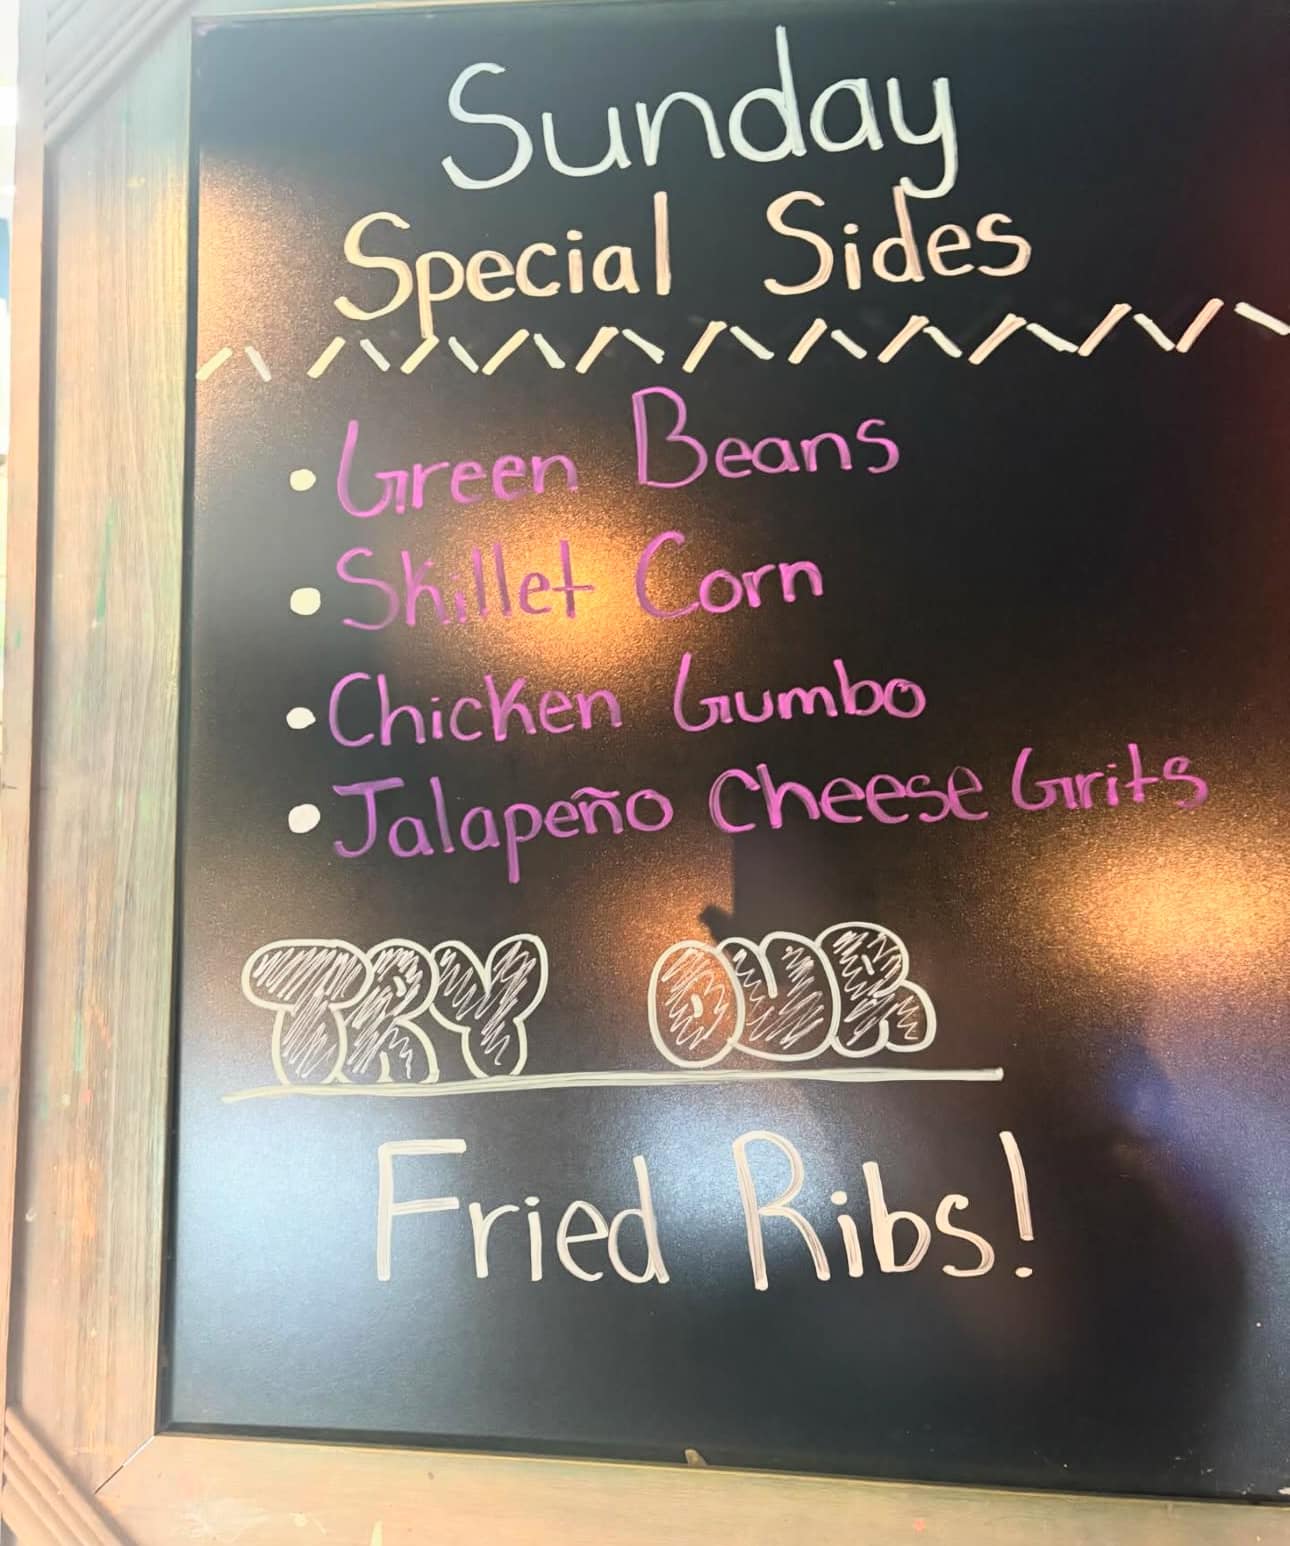 Sunday
Special Sides
• Green Beans
• Skillet Corn
• Chicken Gumbo
• Jalapeño Cheese Grits
TRY OUR
Fried Ribs!